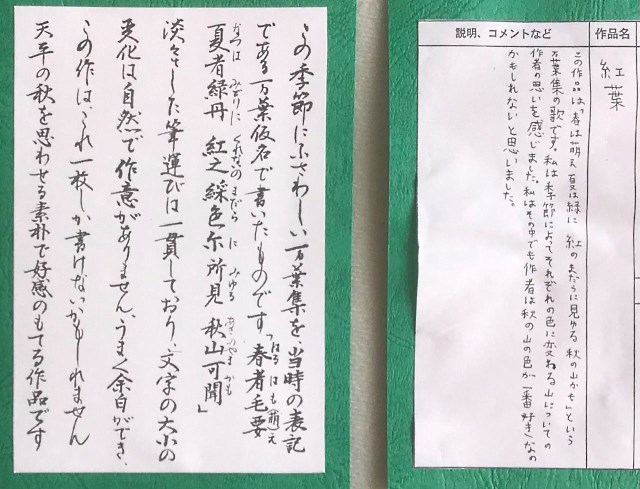 この季節にふさわしい万葉集を、当時の表記
である万葉仮名で書いたものです「春者毛要
はる は も 萌え
夏者緑丹 紅之綵色尓所見 秋山可聞」
なつは みどりに くれなゐの まだら に みゆる あきのやま かも
淡々とした筆運びは一貫しており、文字の大小の
変化は自然で作意がありません、うまく余白ができ、
この作は、これ一枚しか書けないかもしれません
天平の秋を思わせる素朴で好感のもてる作品です
作品名
紅葉
説明、コメントなど
この作品は、「春は萌え 夏は緑に 紅のまだらに見ゆる 秋の山かも」という
万葉集の歌です。私は季節によってそれぞれの色に変わる山についての
作者の思いを感じました。私はその中でも作者は秋の山の色が一番好きなの
かもしれないと思いました。